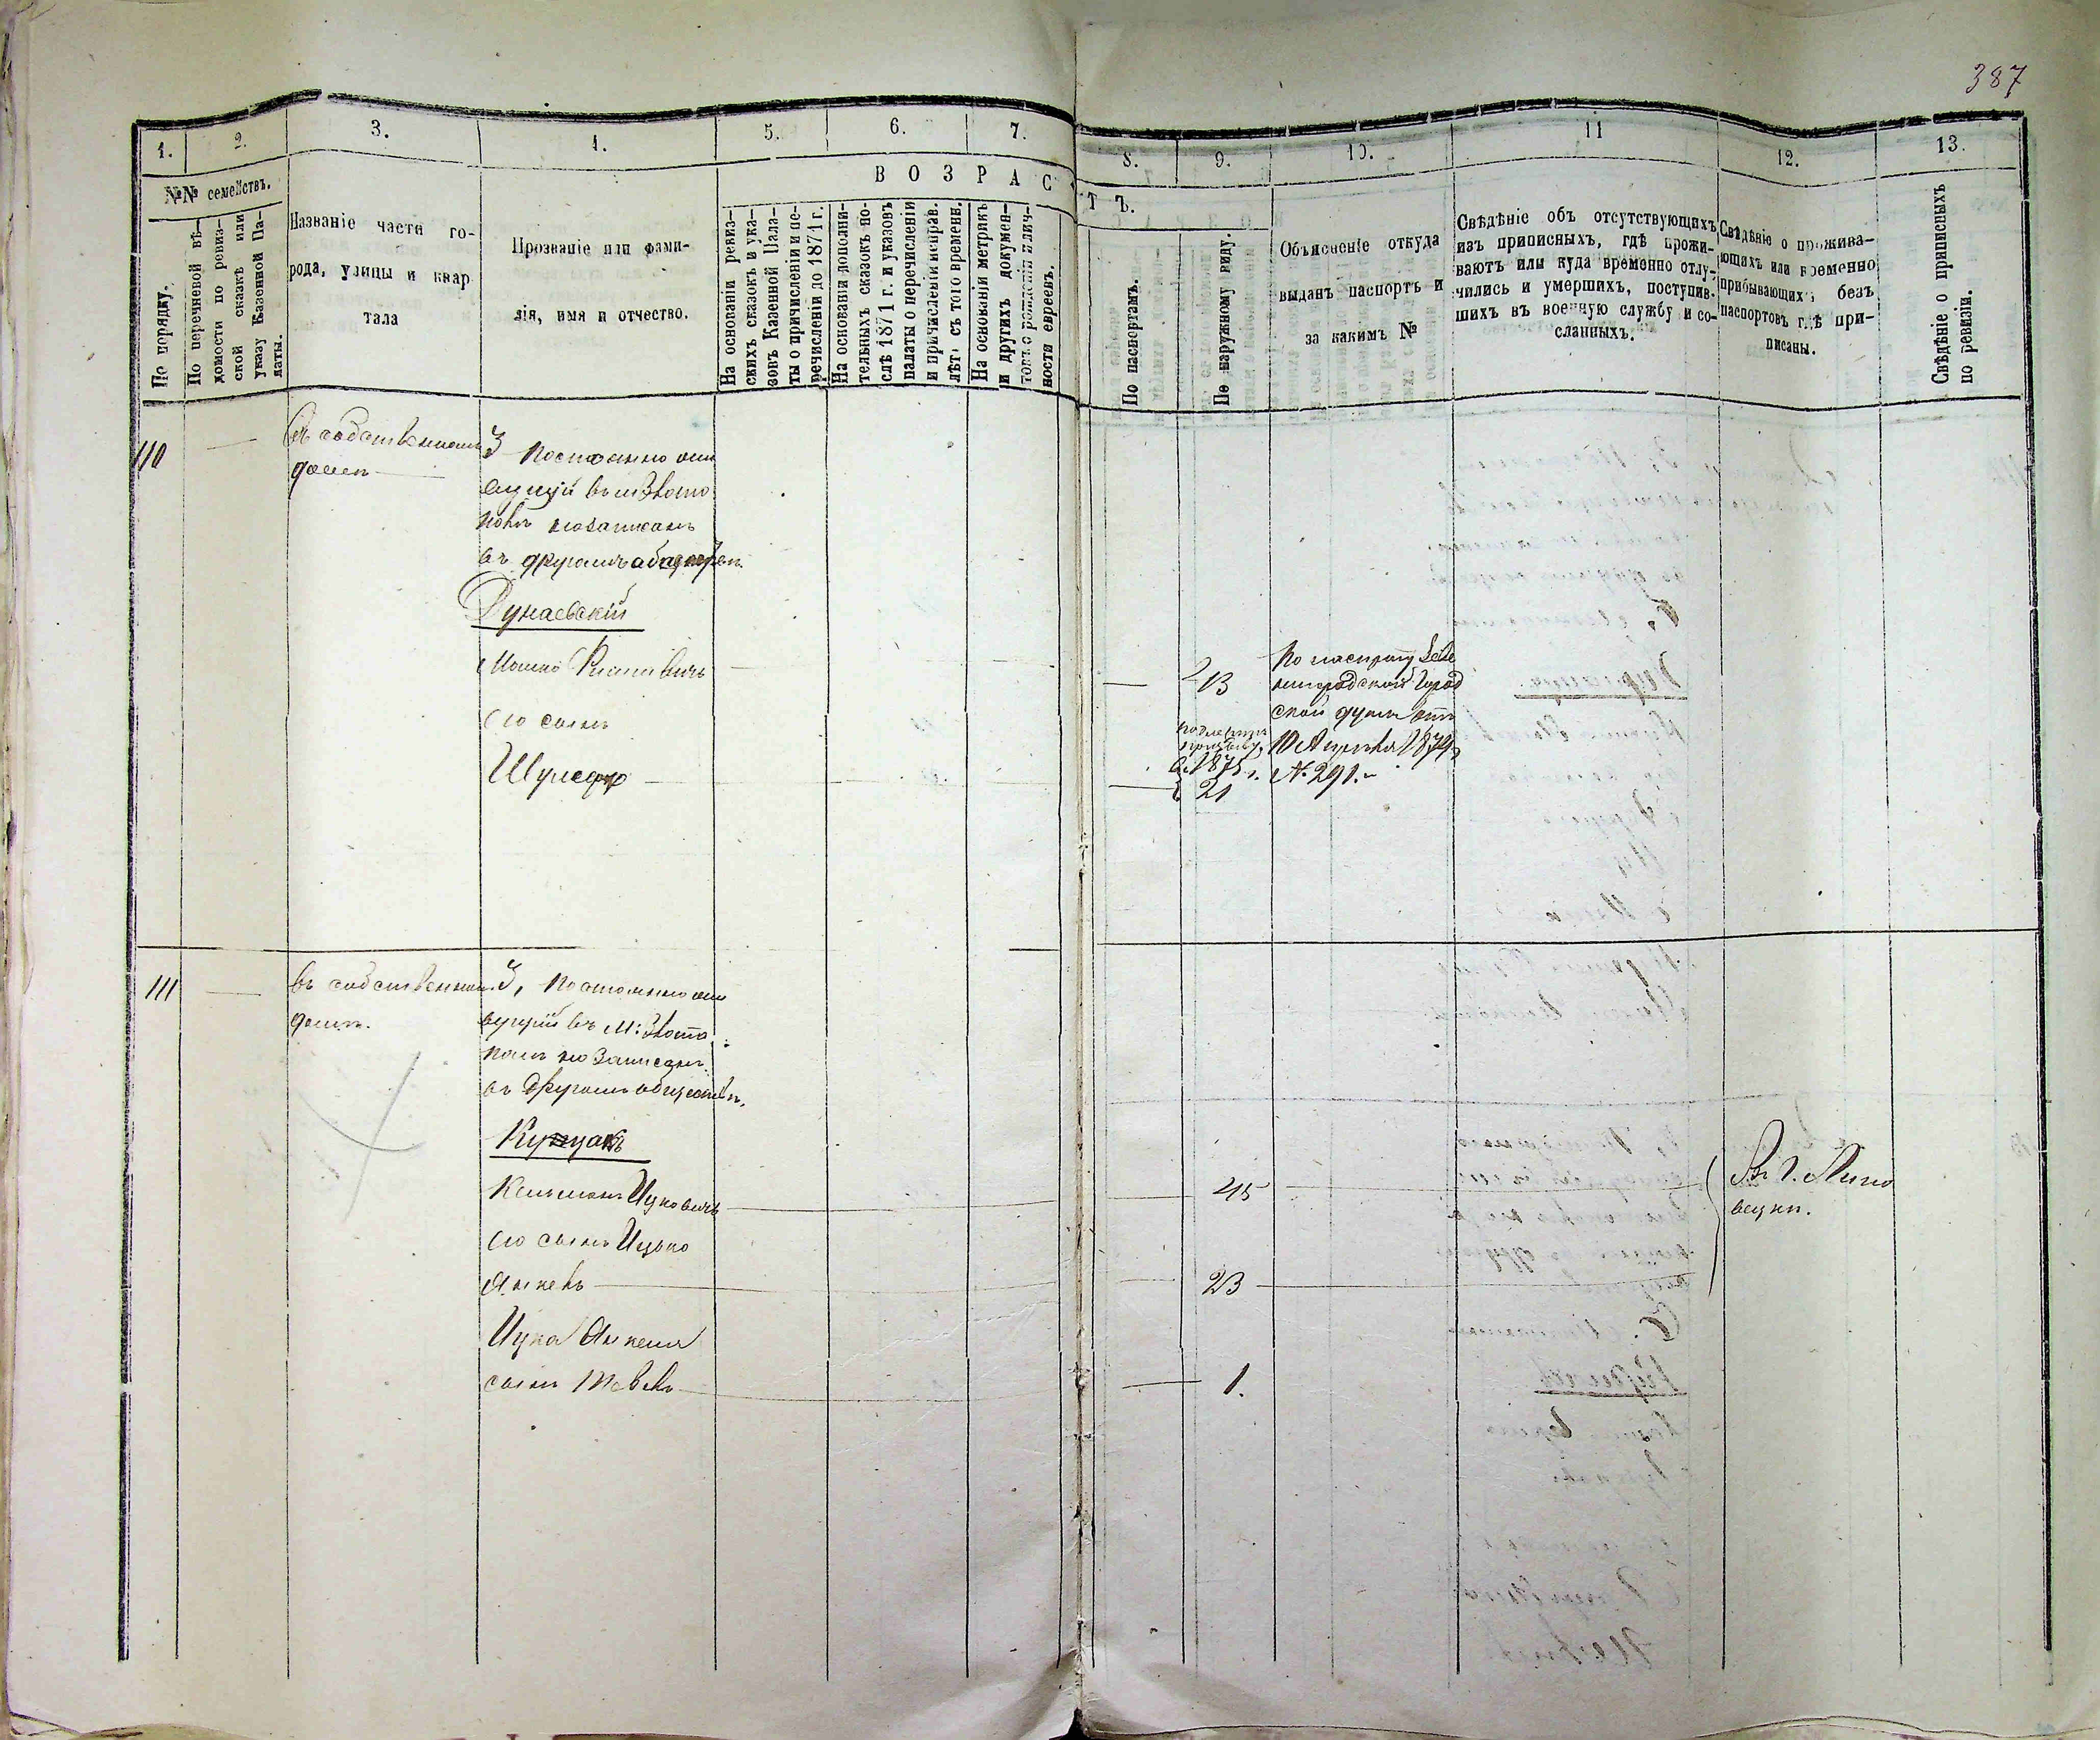 387
1.
2.
3.
4.
5.
6.
7.
8.
9.
10.
11
12.
13.
№№ семействъ.
По порядку.
По перечневой вѣ-
домости по ревиз-
ской сказкѣ или
указу Казенной Па-
латы.
Названіе части го-
рода, улицы и квар
тала
Прозваніе или фами-
лія, имя и отчество.
В О З Р А С
Т Ъ.
На основаніи ревиз-
скихъ сказокъ и ука-
зовъ Казенной Пала-
ты о причисленіи и пе-
речисленіи до 1871 г.
На основаніи дополни-
тельныхъ сказокъ по-
слѣ 1871 г. и указовъ
палаты о перечисленіи
и причисленіи неправ.
лѣт. съ того времени.
На основаніи метрикъ
и другихъ докумен-
товъ о рожденіи и лич-
ности евреевъ.
По паспортамъ.
По наружному виду.
Объясненіе откуда
выданъ паспортъ и
за какимъ №
Свѣдѣніе объ отсутствующихъ
изъ приписныхъ, гдѣ прожи-
ваютъ или куда временно отлу-
чились и умершихъ, поступив-
шихъ въ военную службу и со-
сланныхъ.
Свѣдѣніе о прожива-
ющихъ или временно
прибывающихъ, безъ
паспортовъ гдѣ при-
писаны.
Свѣдѣніе о приписныхъ
по ревизіи.
110
Въ собственномъ
домѣ
3 Постоянно жи
вущій въ м: Злато
полѣ но записанъ
въ другомъ обществѣ
Дунаевскій
Мошко
его сынъ
23
По паспорту
городской Город
ской думы отъ
10 Апрѣля 1874
№ 291.
1875 г.
21
111
въ собственномъ
домѣ.
3, Постоянно жи
вущій въ М: Злато
полѣ но записанъ
въ другомъ обществѣ,
Кельманъ Ицковичъ
45
его сынъ Ицько
Янкель
23
Ицка Янкеля
сынъ
1.
Въ г. Липо
вецкѣ.